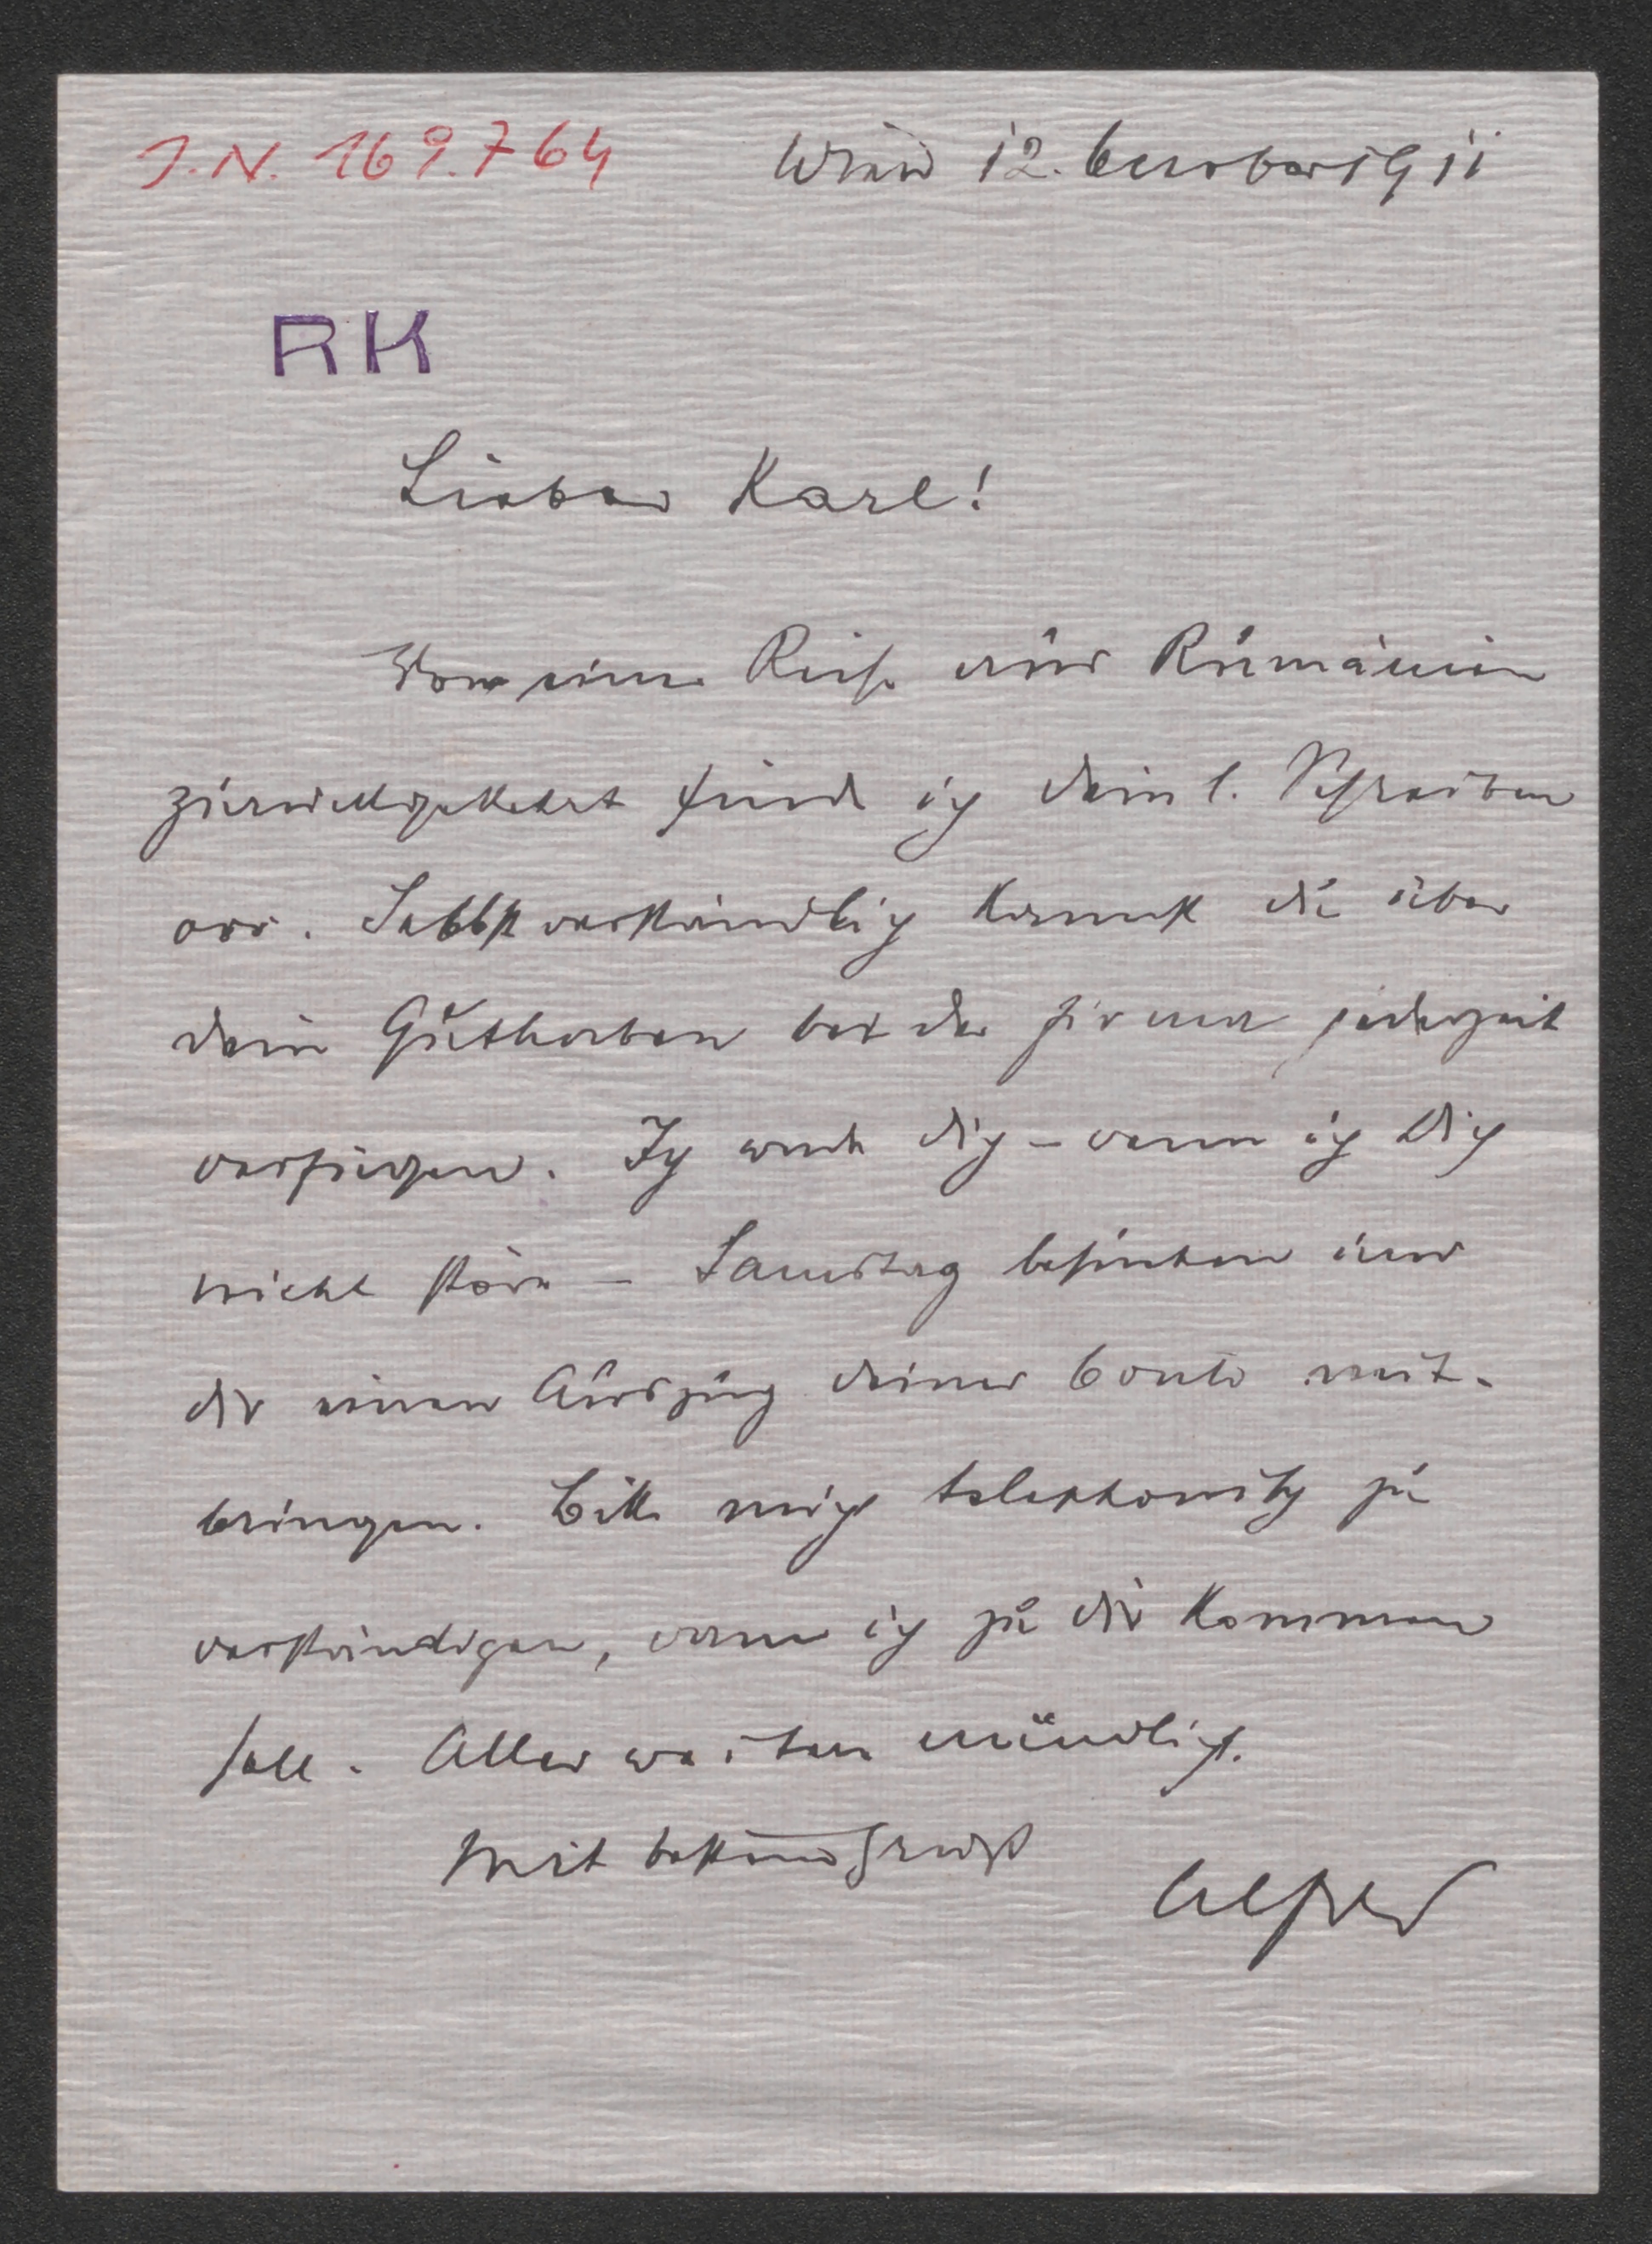 J.N. 169.764
Wien 12. October 1911
RK
Lieber Karl!
Von einer Reise aus Rumänien
zurückgekehrt finde ich dein l. Schreiben
vor. Selbstverständlich kannst du über
dein Guthaben bei der Firma jederzeit
verfügen. Ich werde dich – wenn ich Dich
nicht störe – Samstag besuchen und
dir einen Auszug deines Conto mit-
bringen. Bitte mich telephonisch zu
verständigen, wann ich zu dir kommen
soll. Alles weitere mündlich.
Mit bestem Gruß
Alfred